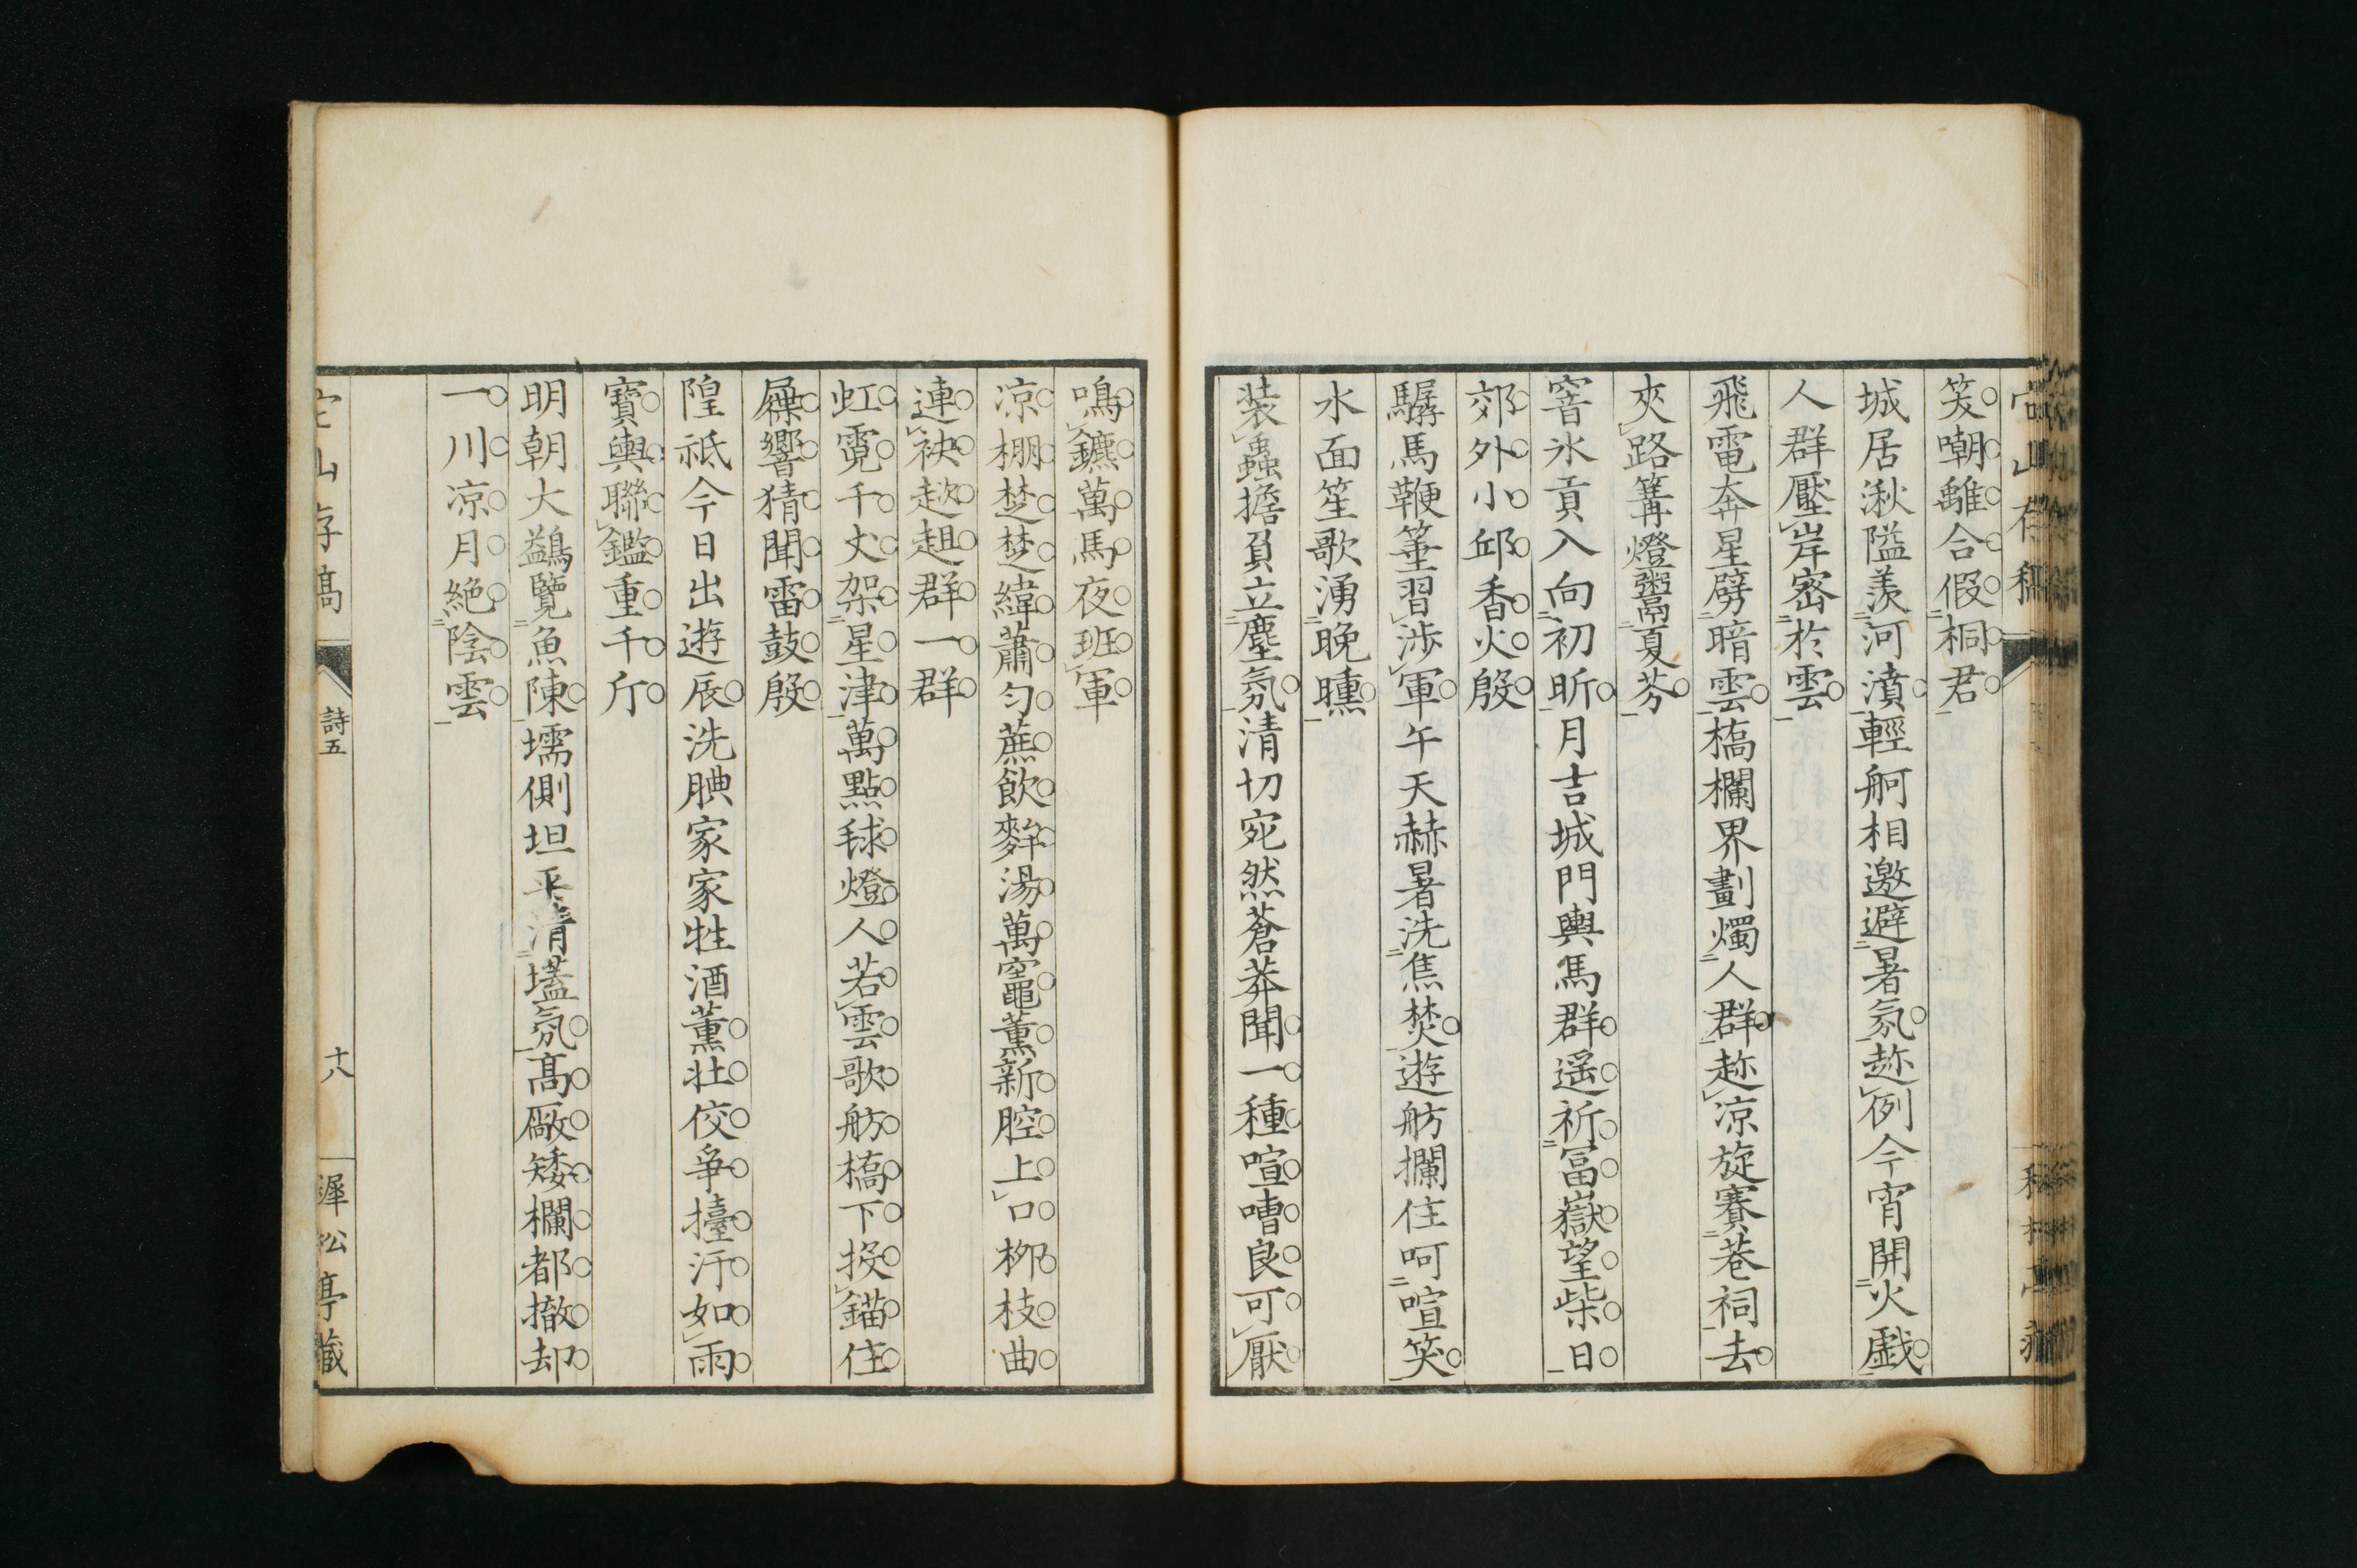 笑嘲離合假桐君
城居湫隘羨河濆輕舸相邀避暑氛趂例今宵開火戯
人群壓岸密於雲
飛電奔星劈暗雲橋欄界劃燭人群趂凉旋賽巷祠去
夾路篝燈鬻夏芬
窖氷貢入向初昕月吉城門輿馬群遥祈冨嶽望柴日
郊外小邱香火殷
騲馬鞭箠習渉軍午天赫暑洗焦焚遊舫攔住呵喧笑
水面笙歌湧晩曛
装蟲擔負立塵氛清切宛然蒼莽聞一種喧嘈良可厭
鳴鑣萬馬夜班軍
凉棚楚楚緯蕭勻蔗飲麰湯萬竈薫新腔上口柳枝曲
連袂趑趄群一群
虹霓千丈架星津萬點毬燈人若雲歌舫橋下投錨住
屧響猜聞雷鼓殷
隍祇今日出遊辰洗腆家家牲酒薫壮佼爭擡汗如雨
寶輿聯鑑重千斤
明朝大鷁覽魚陳壖側坦平清壒氛髙厰矮欄都撤却
一川凉月絶陰雲
宕山存稿
詩五
十八
犀松亭藏